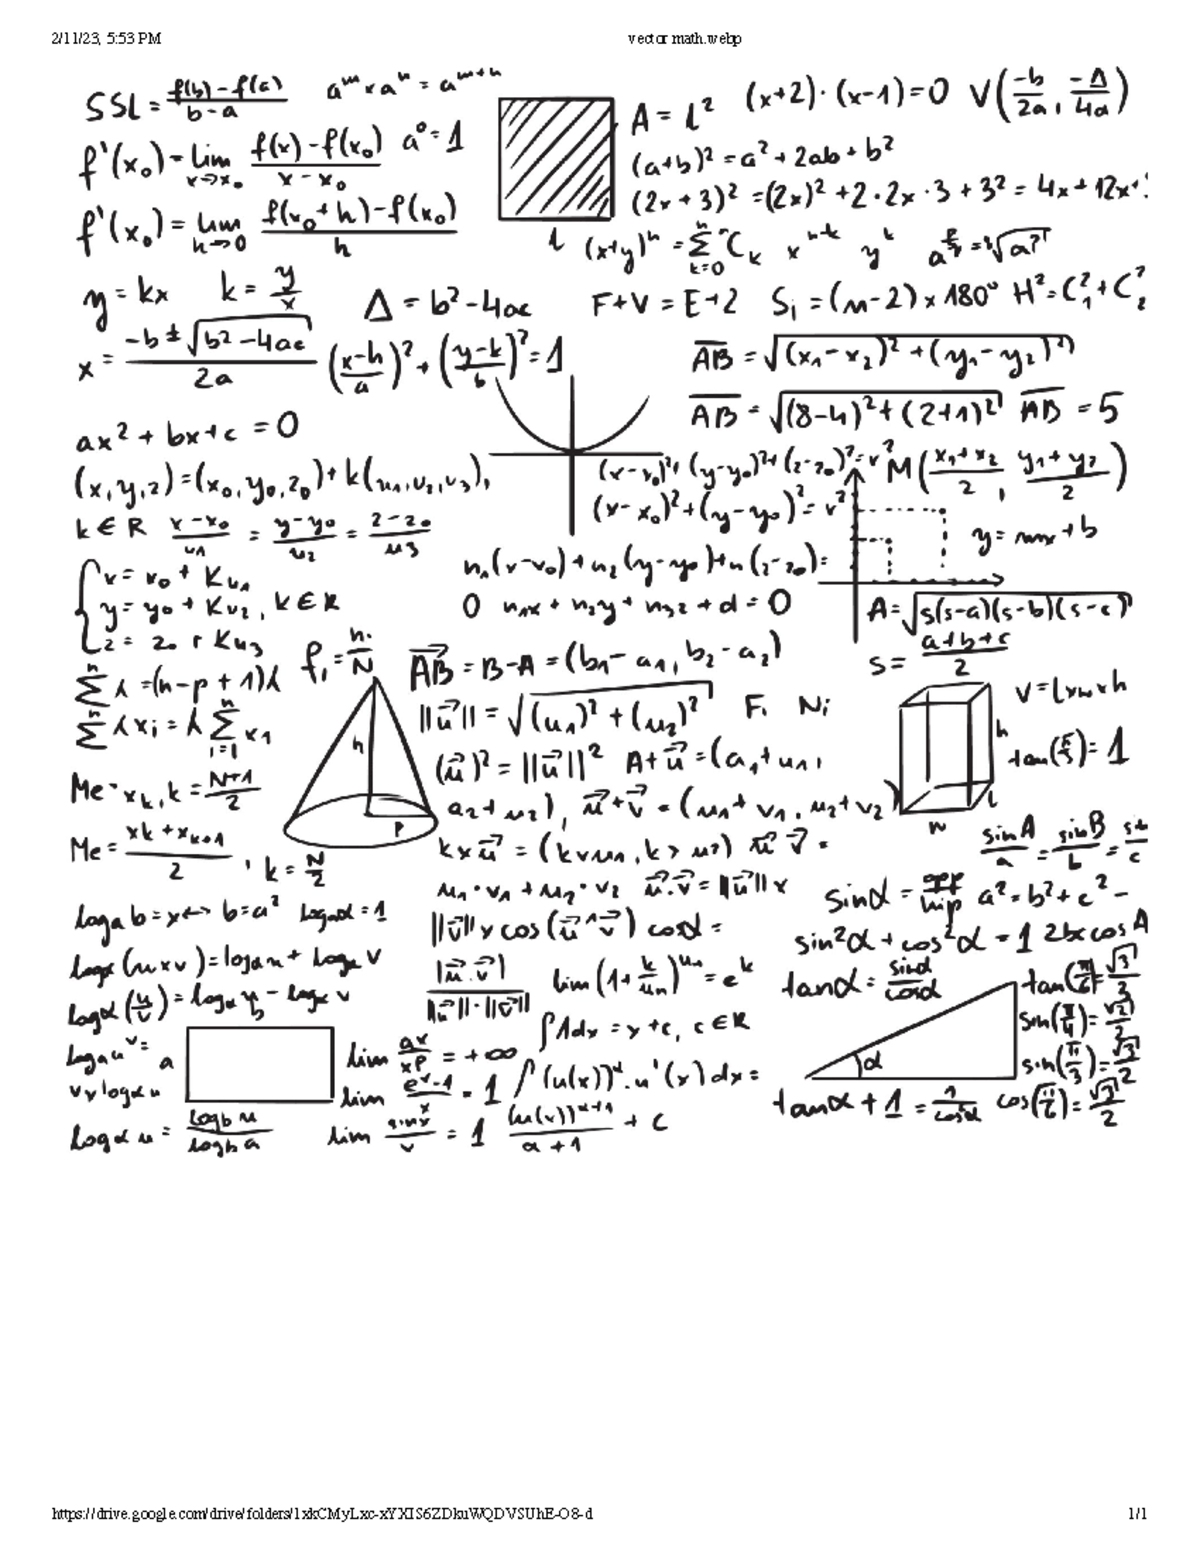 2/11/23, 5:53 PM vector math.webp
SSL = f(b)-f(a) / b-a a^m × a^n = a^(m+n)
A = l² (x+2)·(x-1)=0 V(-b/2a, -Δ/4a)
f'(x₀) = lim x→x₀ f(x)-f(x₀) / x-x₀ a⁰=1
(a+b)² = a²+2ab+b²
(2x+3)² = (2x)²+2·2x·3+3² = 4x+12x+
f'(x₀) = lim h→0 f(x₀+h)-f(x₀) / h
l (x+y)ⁿ = Σ k=0 n ⁿCk x^(n-k) y^k
y = kx k = y/x Δ = b²-4ac F+V = E+2 Si = (n-2)×180° H²=C₁²+C₂²
x = -b±√(b²-4ac) / 2a ((x-h)/a)² + ((y-k)/b)² = 1 AB = √((x₁-x₂)²+(y₁-y₂)²)
AB = √((8-4)²+(2+1)²) AB = 5
ax²+bx+c = 0
(x,y,z)=(x₀,y₀,z₀)+k(u₁,u₂,u₃), (x-x₀)²+(y-y₀)²+(z-z₀)²=r² M(x₁+x₂/2, y₁+y₂/2)
(x-x₀)²+(y-y₀)²=r²
k∈R x-x₀/u₁ = y-y₀/u₂ = z-z₀/u₃ y = mx+b
{x = x₀+Ku₁ n₁(x-x₀)+n₂(y-y₀)+n(z-z₀)=
y = y₀+Ku₂, k∈R 0 n₁x+n₂y+n₃z+d=0 A=√s(s-a)(s-b)(s-c)
z = z₀+Ku₃ s = a+b+c / 2
f₁ = n·/N AB = B-A = (b₁-a₁, b₂-a₂)
Σ n λ =(n-p+1)λ ||u|| = √(u₁)²+(u₂)² Fi Ni V=l×w×h
Σ n λxi = λ Σ i=1 n x₁ h h
(u)² = ||u||² A+u = (a₁+u₁, tan(π/4)=1
Me = xk, k = N+1 / 2 a₂+u₂), u+v = (u₁+v₁, u₂+v₂) l w
Me = xk+xk+1 / 2, k = N/2 k×u = (k×u₁, k×u₂) u·v = sinA/a = sinB/b = sin/c
u₁·v₁+u₂·v₂ u·v = ||u||× sinα = opp/hip a²=b²+c²-
loga b = x↔b=a² logaα=1 ||v||×cos(u^v) cosα = sin²α+cos²α = 1 2bc cos A
loga(u×v)=loga u + loga v |u·v| / ||u||·||v|| lim(1+k/un)^un = e^k tanα = sinα/cosα tan(π/6)=√3/3
logα(u/v)=loga u - loga v ∫1dx = x+c, c∈R sin(π/4)=√2/2
loga u^v = a lim a^x/x^p = +∞ α sin(π/3)=√3/2
v×logα u lim e^x-1/x = 1 ∫(u(x))^α·u'(x)dx =
tanα+1 = 1/cos²α cos(π/6)=√3/2
logα u = logb u / logb a lim sinx/x = 1 (u(x))^(α+1) / α+1 + C
https://drive.google.com/drive/folders/1xkCMyLxc-xYXIS6ZDkuWQDVSUhE-O8-d 1/1